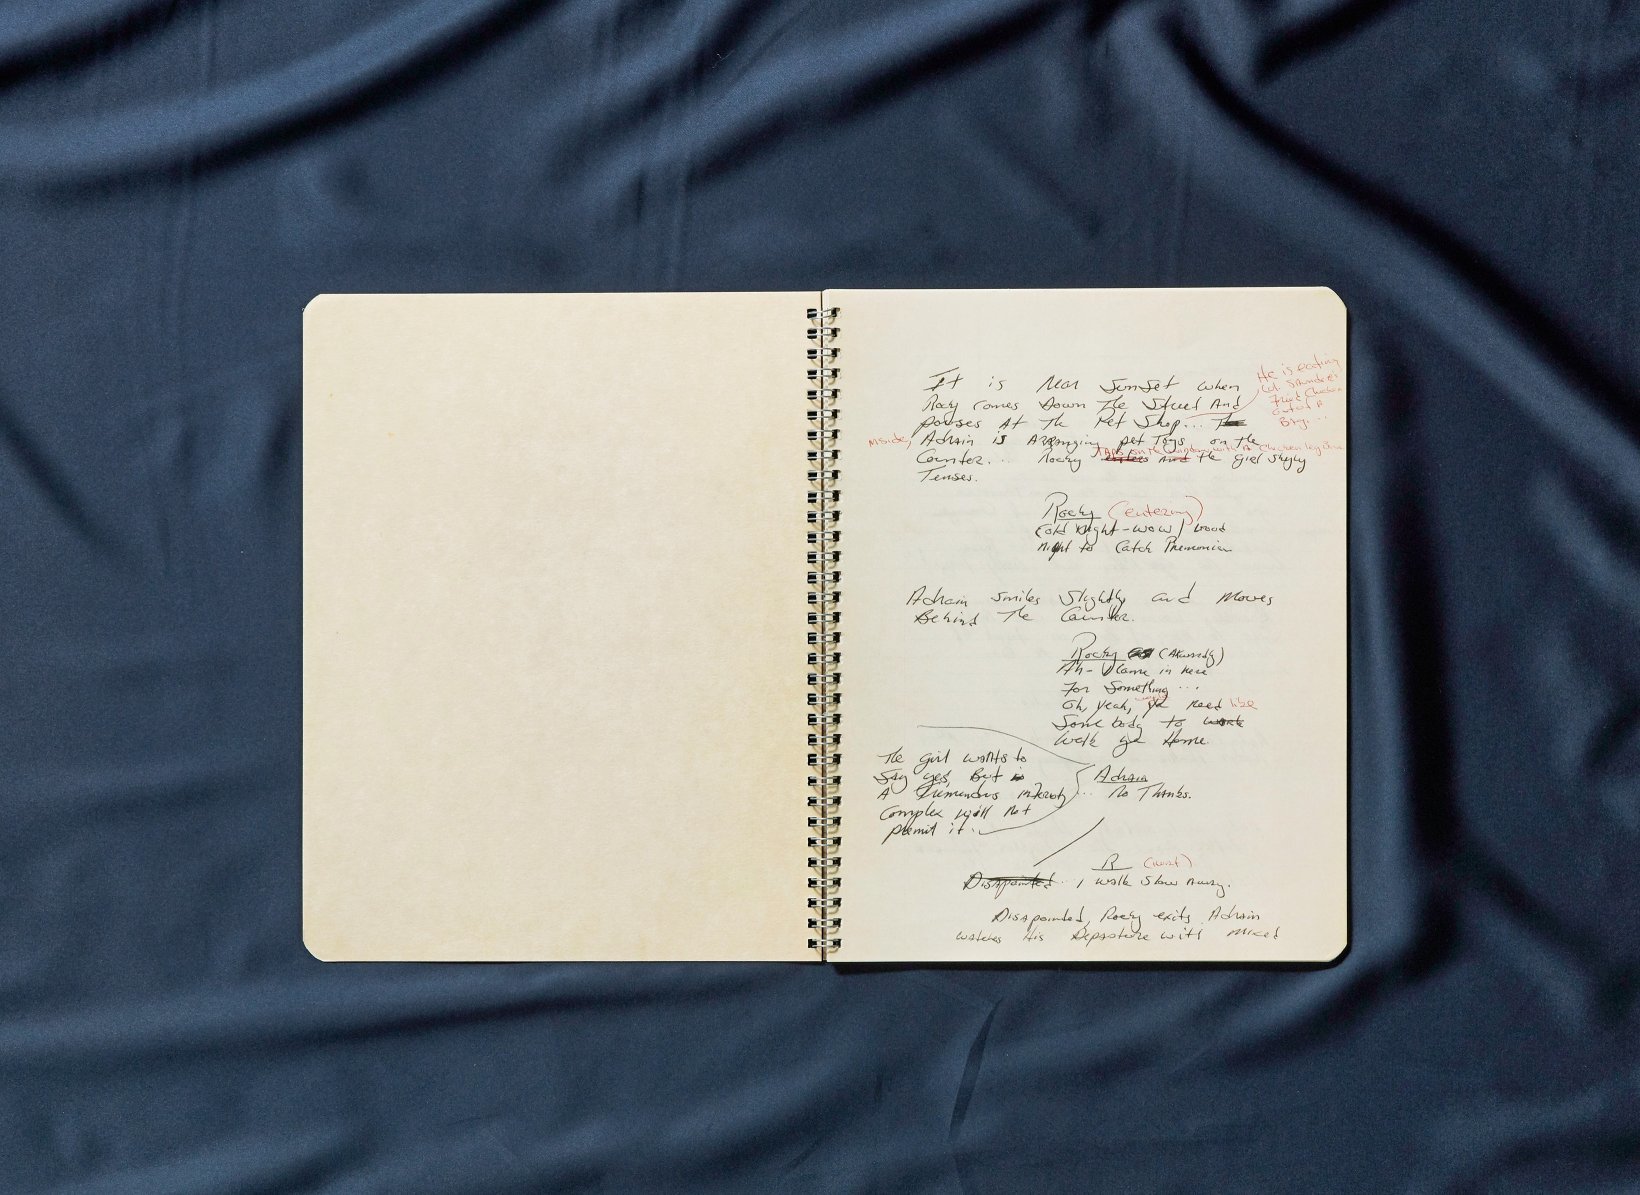 It is Near Sunset when
Rocky comes Down The Street And
pauses At The Pet Shop...
He is eating
Col. Saunders
Fried Chicken
out of A
Bag...
inside, Adrain is Arranging pet Toys on the
TAPS on the window with A Chicken leg Bone
Counter... Rocky enters And the girl shyly
Tenses.
Rocky (entering)
Cold Night - wow, Good
Night to Catch Pnemonia
Adrain smiles Slightly and Moves
Behind The Counter.
Rocky (Akwardly)
Ah- I came in here
For Something...
Oh, yeah, ya need like
Some body to work
Walk ya Home.
The girl wants to
Say yes, But
A Tremendous inferority
Complex will not
permit it.
Adrain
... No Thanks.
R
Disapointed... I walk Slow Away.
Disapointed, Rocky exits. Adrain
watches His Departure with mixed